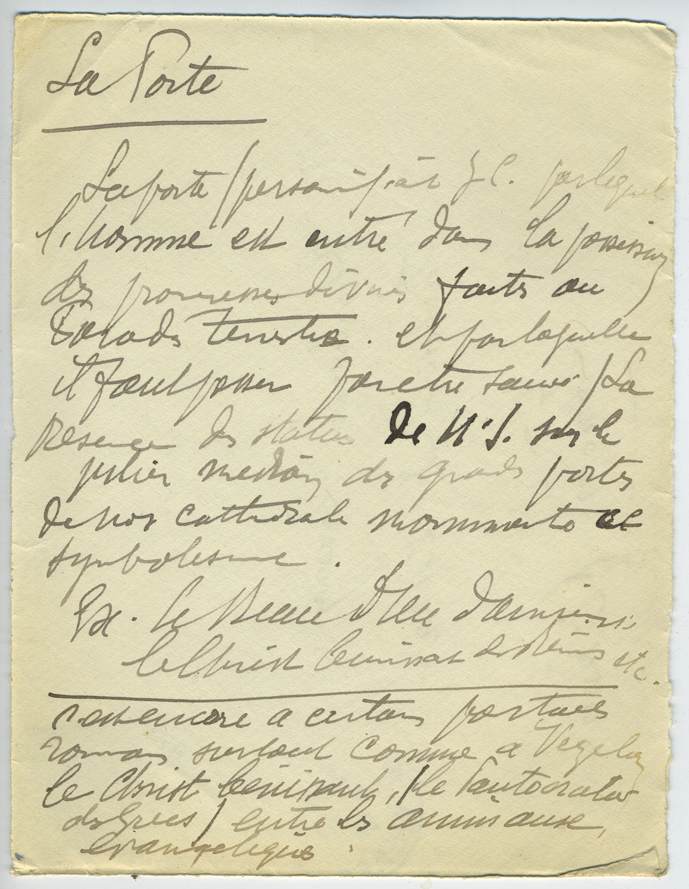 La Porte
La porte / personnifiait J C. par lequel
l'homme est entré dans la possession
des promesses divines faites au
Paradis Terrestre. et par laquelle
il faut passer pour etre sauvé / La
presence des statues de N. S. sur le
pilier median des grandes portes
de nos cathedrales monumente ce
symbolisme.
Ex. le Beau Dieu d'Amiens
le Christ benissant de Reims etc.
c'est encore a certains portails
romans surtout comme a Vezelay
le Christ benissant, / le Pantocrator
des Grecs / entre les animaux
evangeliques.